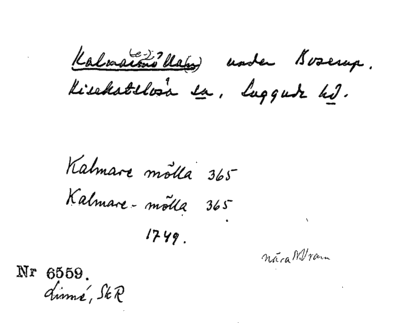 Kalmaremölla(n) under Boserup.
Risekatslösa sn, Luggude hd.
Kalmare mölla 365
Kalmare-mölla 365
1749.
nära Vram
Nr 6559.
Linné, SkR